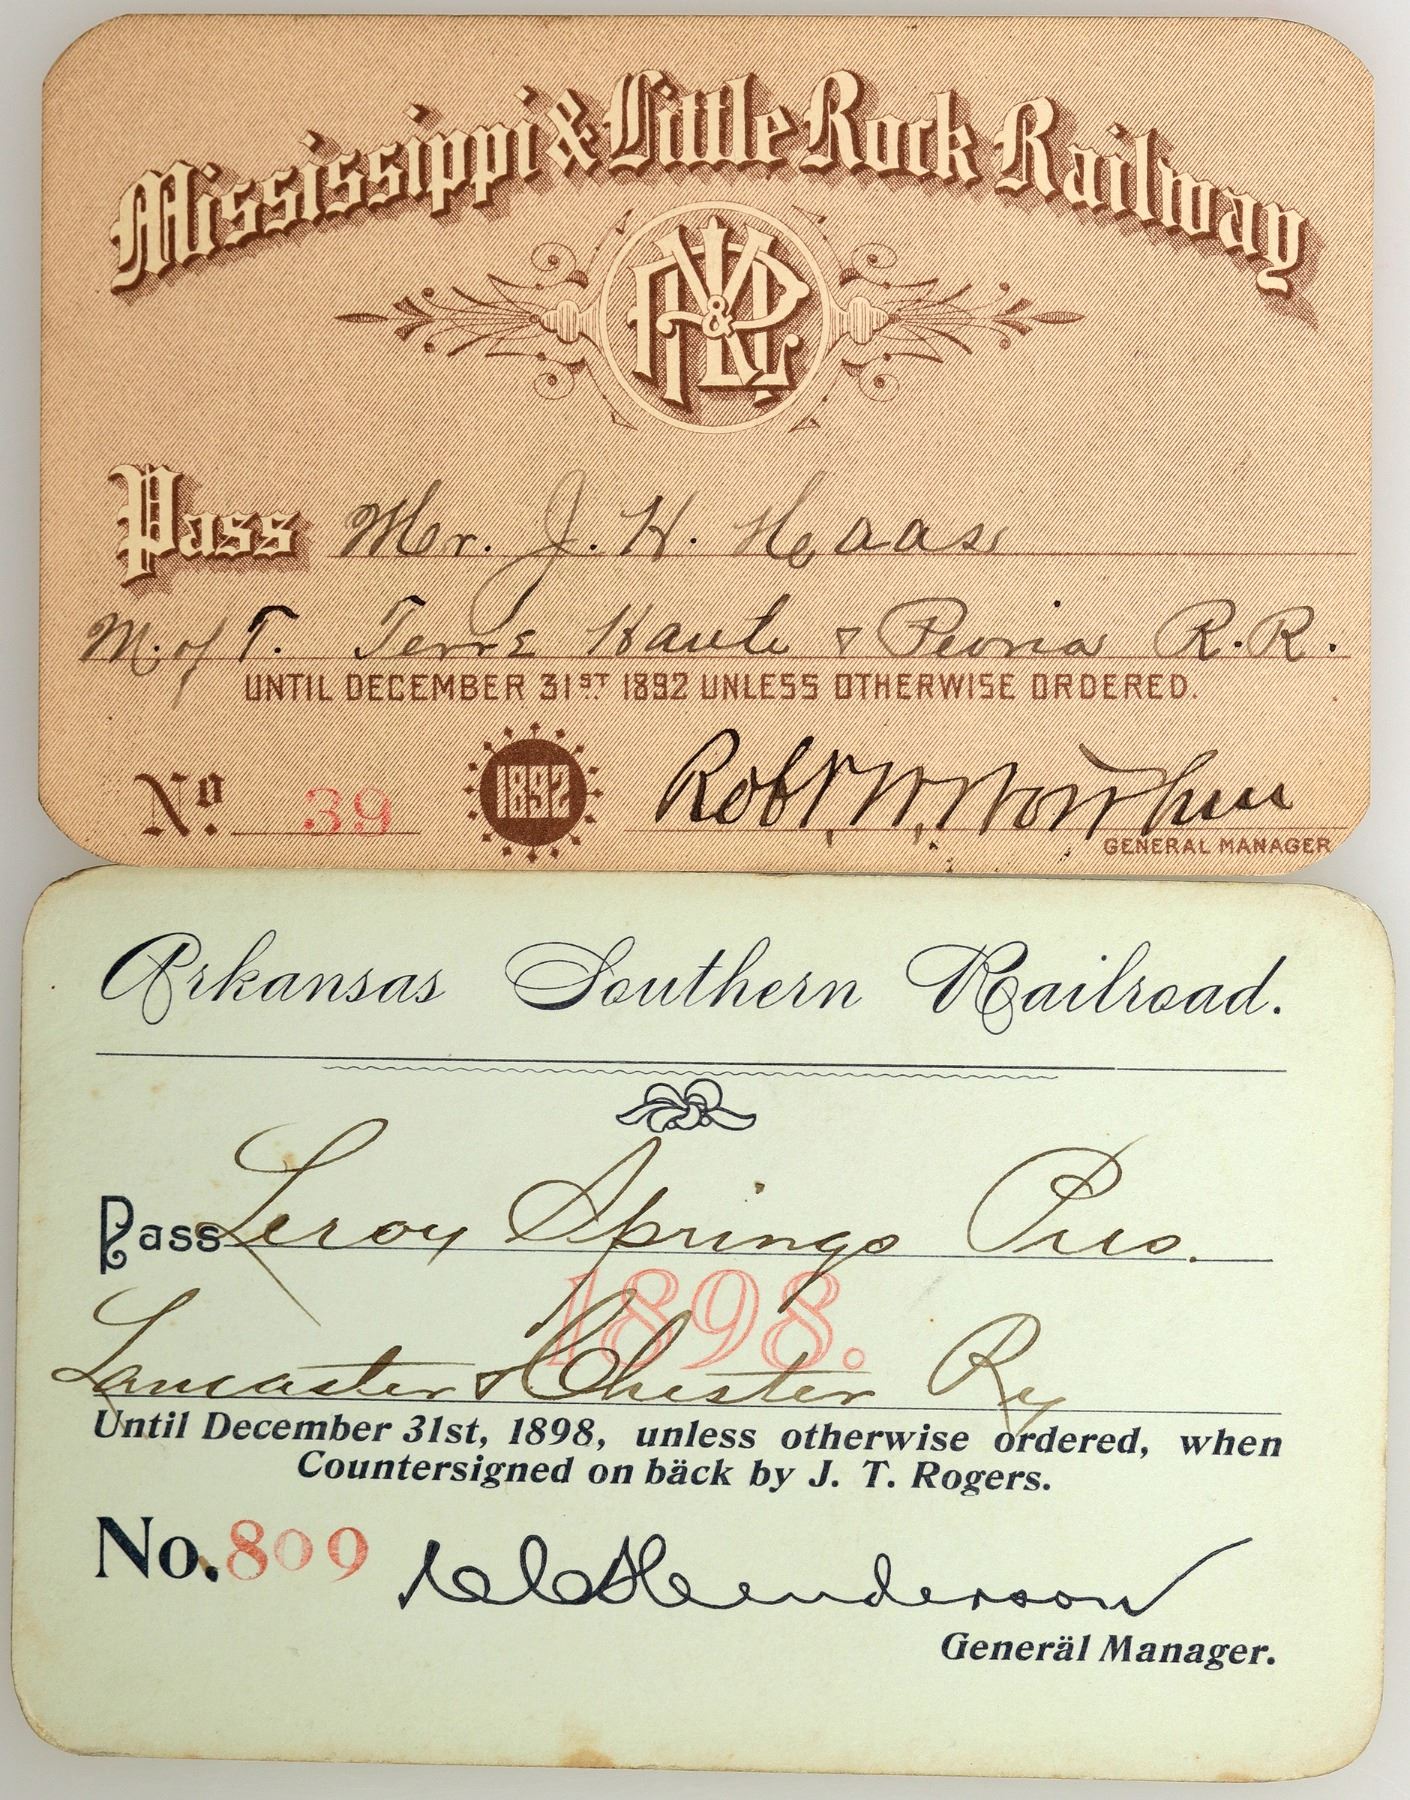 Mississippi & Little Rock Railway
M & L R
Pass Mr. J. H. Haas
M. of T. Terre Haute & Peoria R.R.
UNTIL DECEMBER 31ST 1892 UNLESS OTHERWISE ORDERED.
No. 39 1892 Robt. W.
GENERAL MANAGER
Arkansas Southern Railroad.
Pass Leroy Springs Pres.
1898.
Lancaster & Chester Ry
Until December 31st, 1898, unless otherwise ordered, when
Countersigned on bäck by J. T. Rogers.
No. 809 Henderson
Generäl Manager.